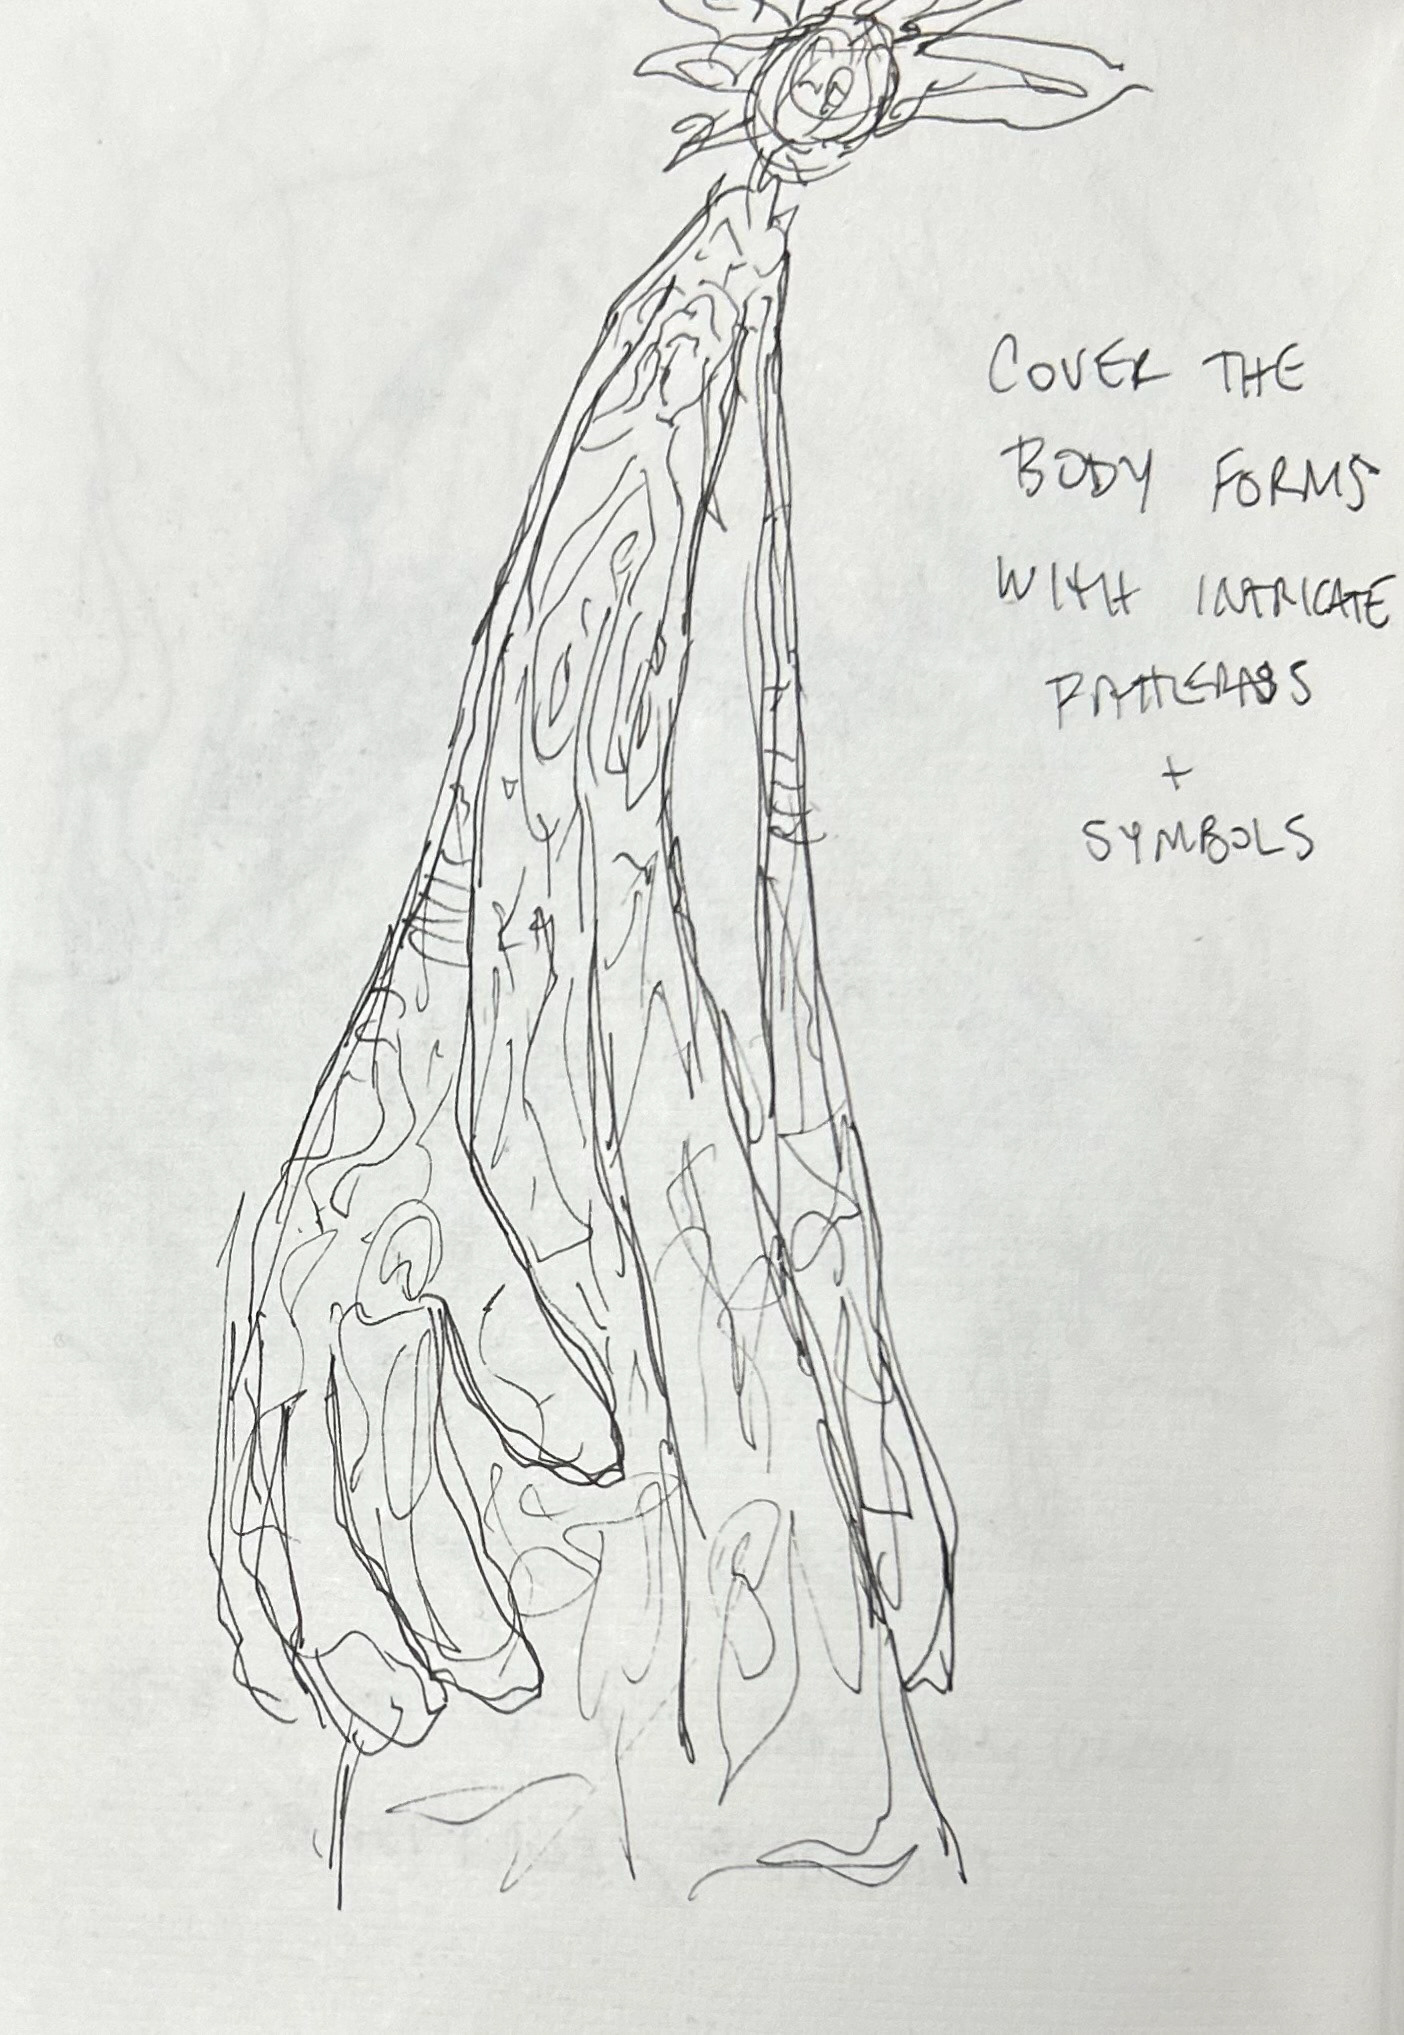 COVER THE
BODY FORMS
WITH INTRICATE
PATTERNS
+
SYMBOLS